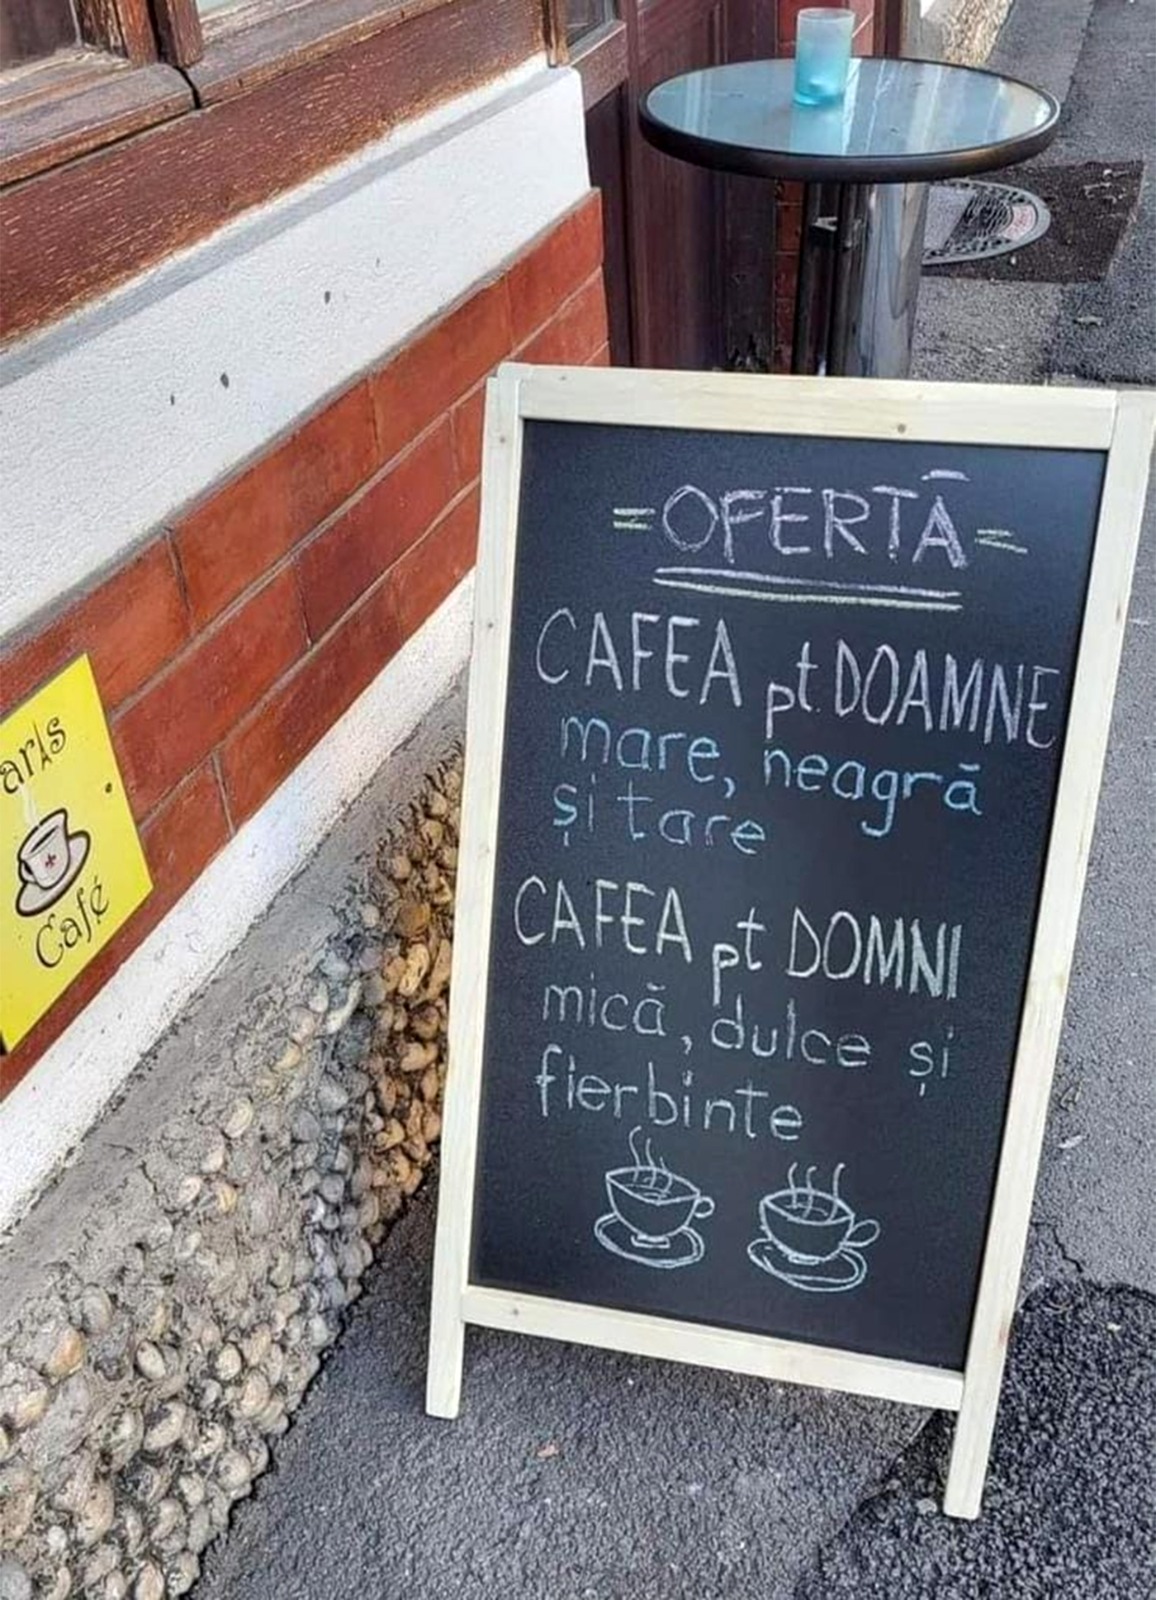 = OFERTĂ =
CAFEA pt DOAMNE
mare, neagră
și tare
CAFEA pt DOMNI
mică, dulce și
fierbinte
Café